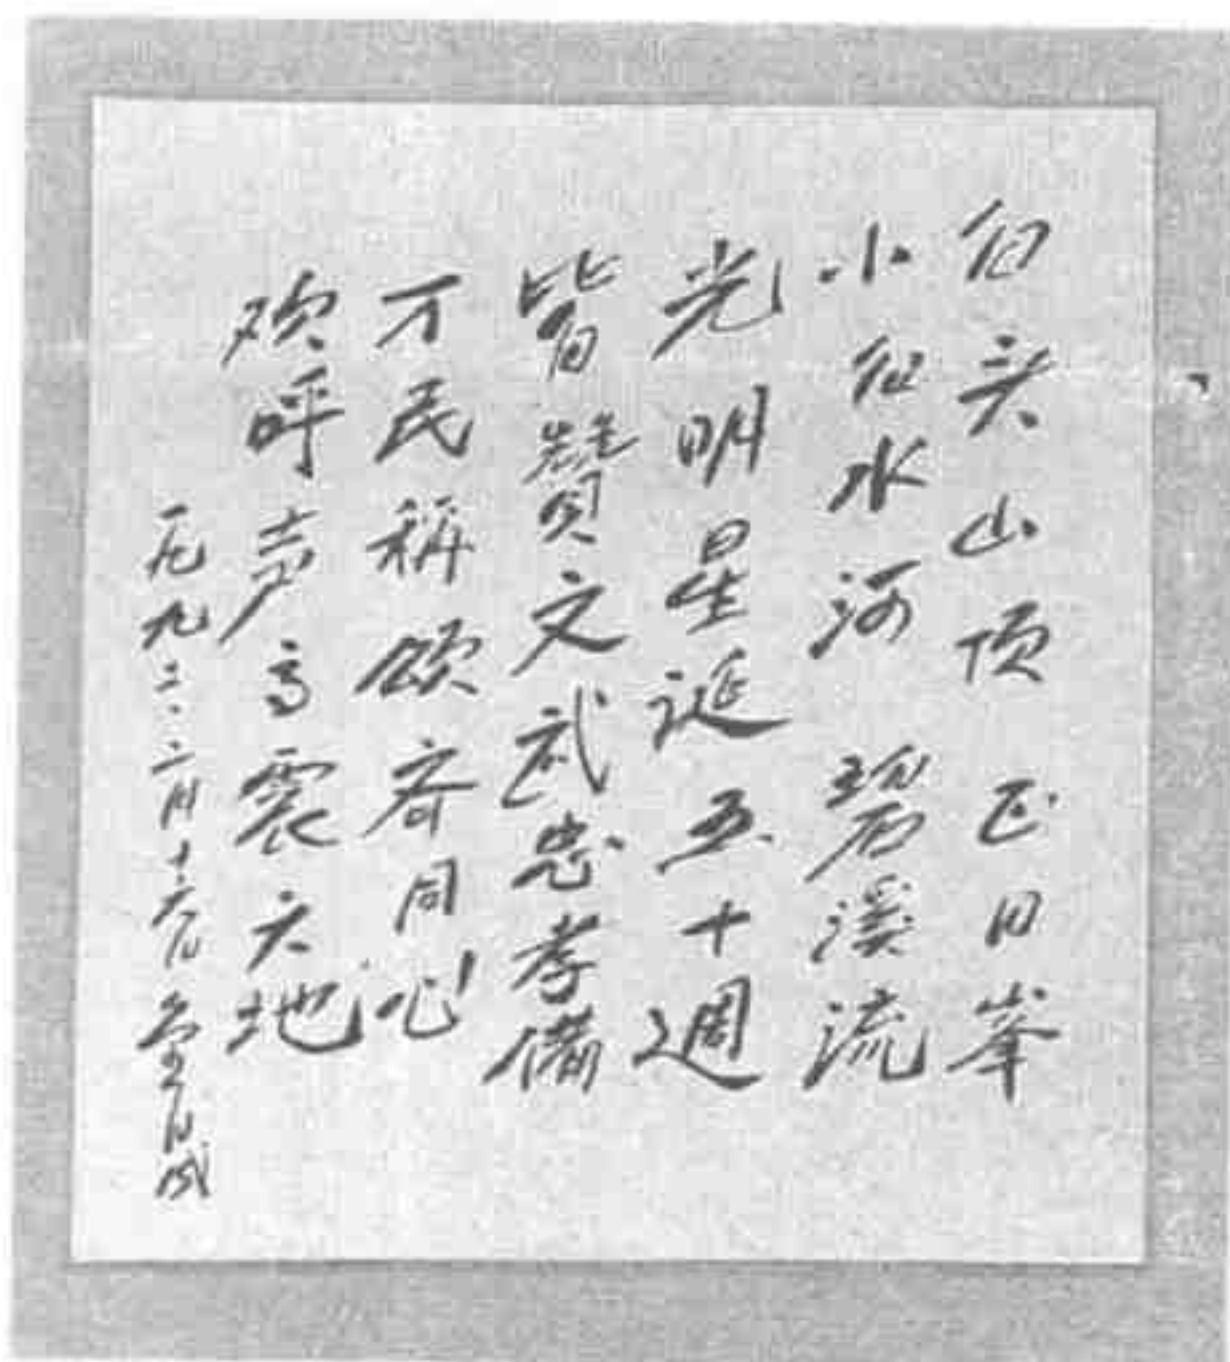 白头山顶正日峯
小白水河碧溪流
光明星诞五十週
皆赞文武忠孝備
万民稱颂齐同心
欢呼声高震天地
一九九二·二月十六日 金日成